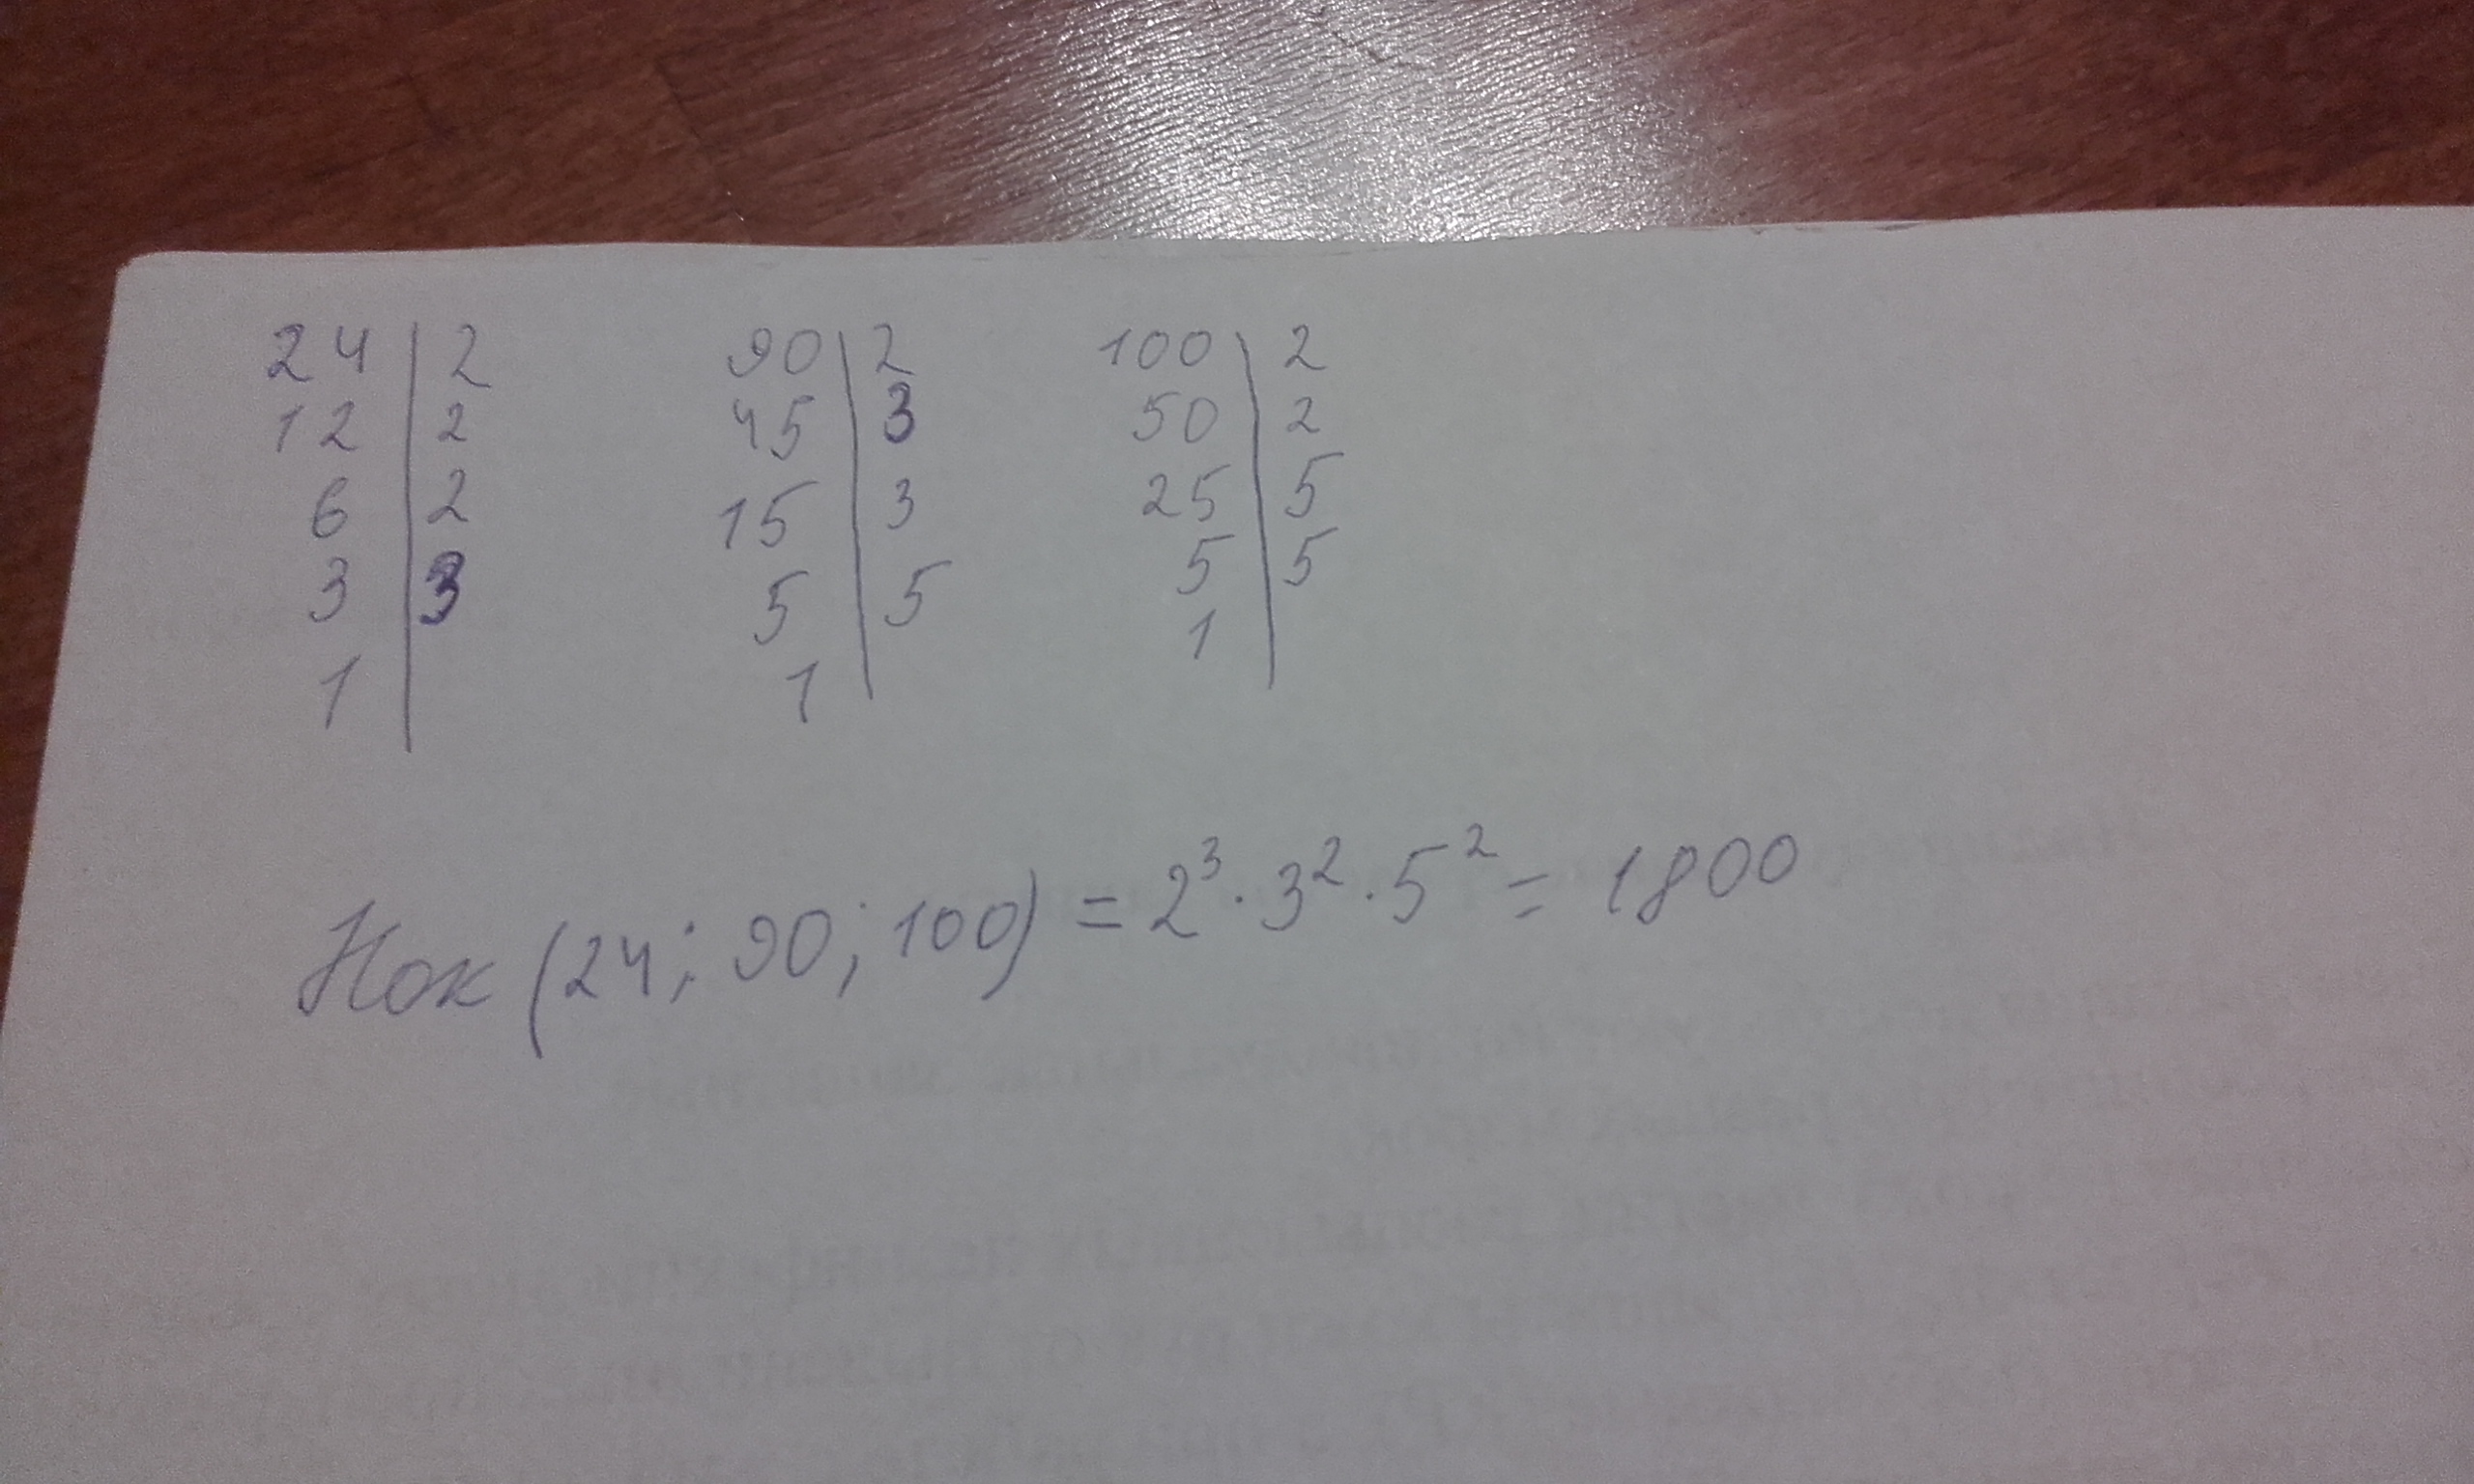 24 | 2   90 | 2   100 | 2
12 | 2   45 | 3   50 | 2
6 | 2   15 | 3   25 | 5
3 | 3   5 | 5   5 | 5
1 |   1 |   1 |
Нок (24; 90; 100) = 2³ · 3² · 5² = 1800